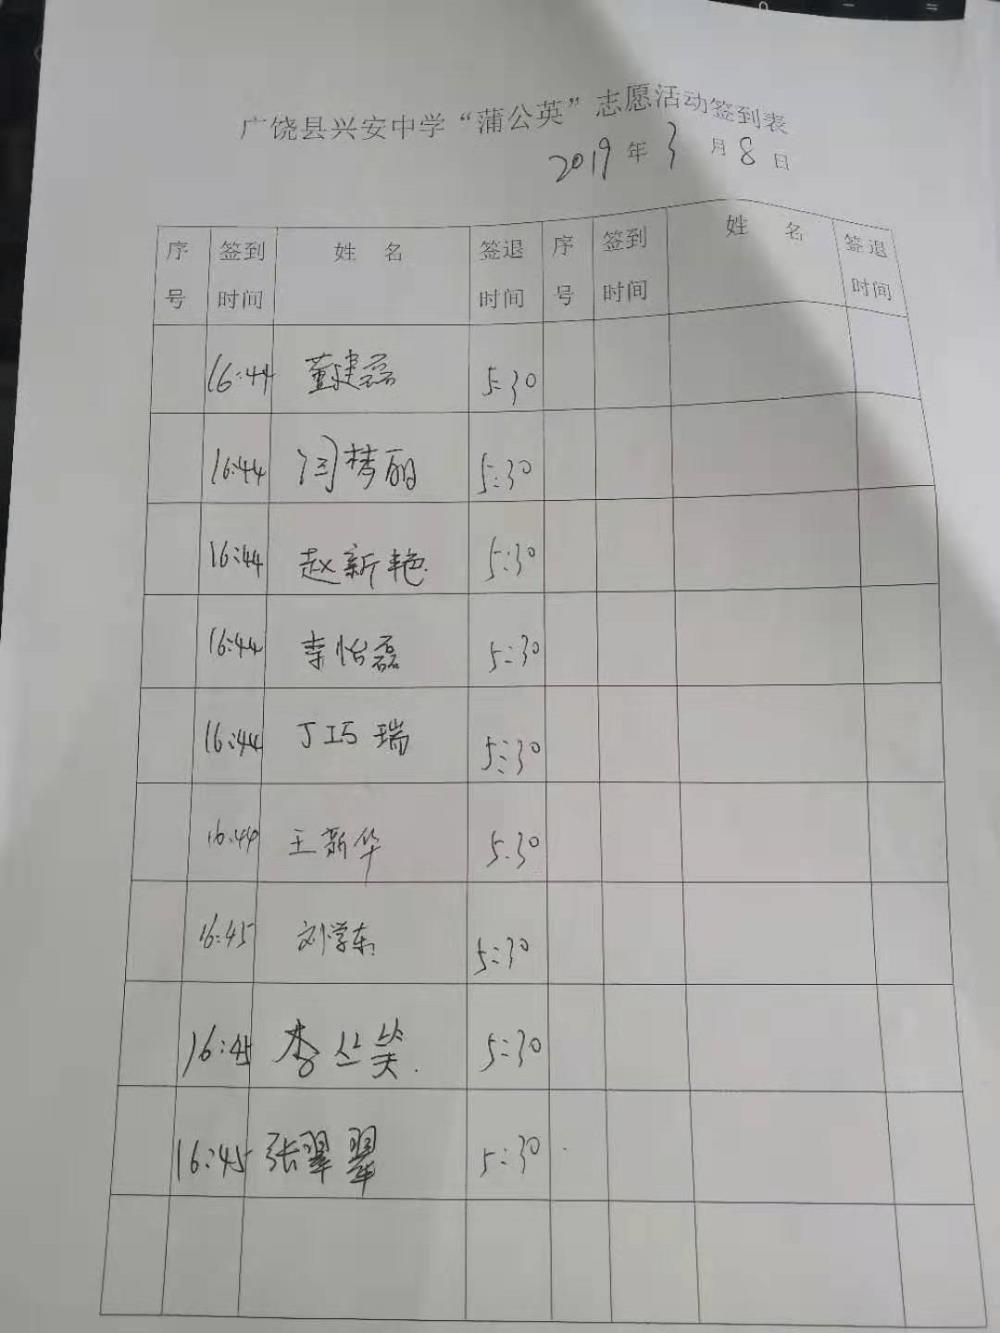 广饶县兴安中学“蒲公英”志愿活动签到表
2019年3月8日
序号 签到时间 姓 名 签退时间 序号 签到时间 姓 名 签退时间
16:44 董建磊 5:30
16:44 闫梦丽 5:30
16:44 赵新艳 5:30
16:44 李怡磊 5:30
16:44 丁巧瑞 5:30
16:44 王新华 5:30
16:45 刘学东 5:30
16:45 李丛笑 5:30
16:45 张翠翠 5:30